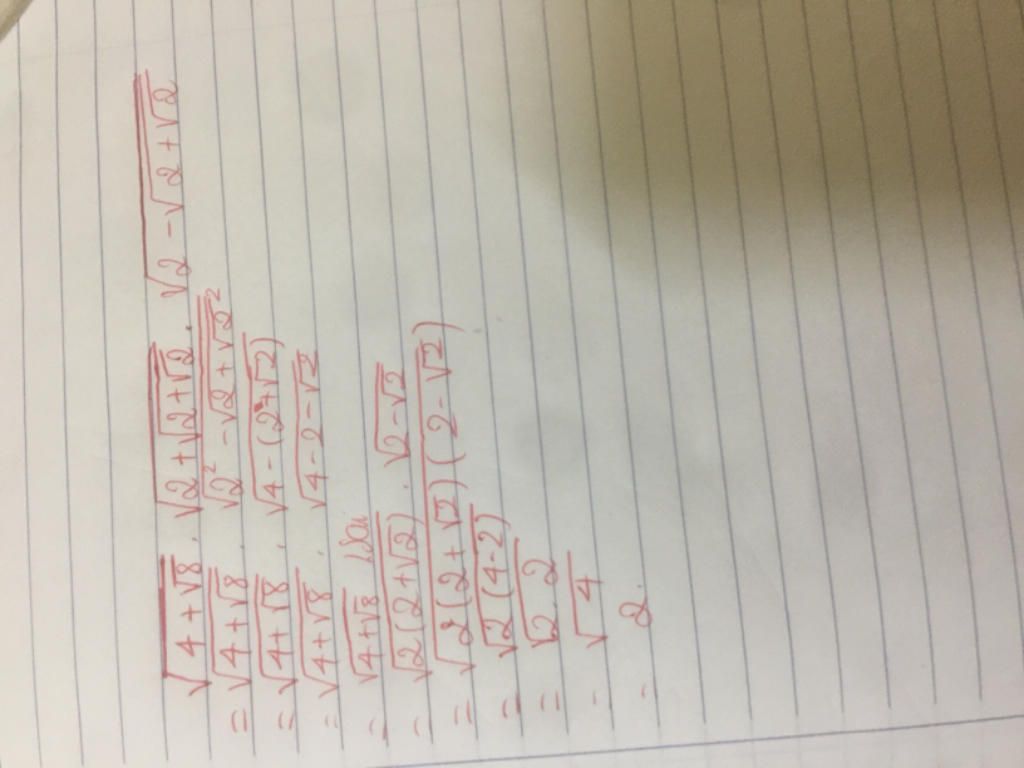 √(4+√8) . √(2+√(2+√2)) . √(2-√(2+√2))
= √(4+√8) . √(2² - √(2+√2)²)
= √(4+√8) . √(4-(2+√2))
= √(4+√8) . √(4-2-√2)
= √(4+√8)
= √(2(2+√2)) . √(2-√2)
= √(2(2+√2)(2-√2))
= √(2(4-2))
= √(2.2)
= √4
= 2.